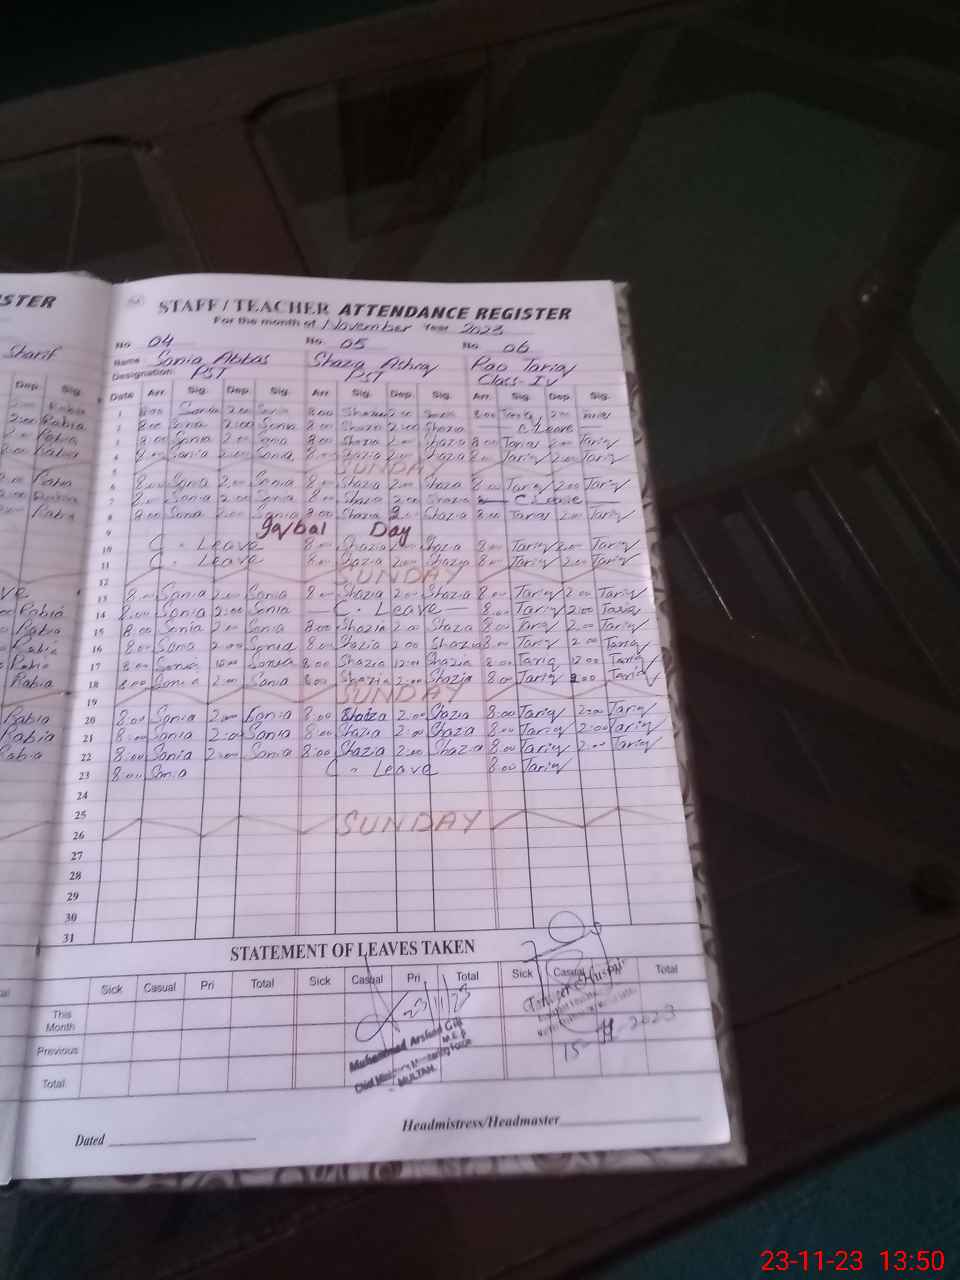 STER
STAFF / TEACHER ATTENDANCE REGISTER
For the month of November Year 2023
Sharif
No. 04 No. 05 No. 06
Name Sonia Abbas Shazia Ashraf Rao Tariq
Designation: PST PST Class-IV
Dep. Sig. Date Arr. Sig. Dep. Sig. Arr. Sig. Dep. Sig. Arr. Sig. Dep. Sig.
1 8:00 Sonia 2:00 Sonia 8:00 Shazia 2:00 8:00 Tariq 2:00
2:00 Rabia 2 8:00 Sonia 2:00 Sonia 8:00 Shazia 2:00 Shazia C Leave
Rabia 3 8:00 Sonia 2:00 Sonia 8:00 Shazia 2:00 Shazia 8:00 Tariq 2:00 Tariq
Rabia 4 8:00 Sonia 2:00 Sonia 8:00 Shazia 2:00 Shazia 8:00 Tariq 2:00 Tariq
5 SUNDAY
Rabia 6 8:00 Sonia 2:00 Sonia 8:00 Shazia 2:00 Shaza 8:00 Tariq 2:00 Tariq
2:00 Rabia 7 8:00 Sonia 2:00 Sonia 8:00 Shazia 2:00 Shazia C Leave
Rabia 8 8:00 Sonia 2:00 Sonia 8:00 Shazia 2 Shazia 8:00 Tariq 2:00 Tariq
9 Iqbal Day
10 C. Leave 8:00 Shazia 2:00 Shazia 8:00 Tariq 2:00 Tariq
11 C. Leave 8:00 Shazia 2:00 Shazia 8:00 Tariq 2:00 Tariq
12 SUNDAY
ve 13 8:00 Sonia 2:00 Sonia 8:00 Shazia 2:00 Shazia 8:00 Tariq 2:00 Tariq
Rabia 14 8:00 Sonia 2:00 Sonia C. Leave 8:00 Tariq 2:00 Tariq
Rabia 15 8:00 Sonia 2:00 Sonia 8:00 Shazia 2:00 Shazia 8:00 Tariq 2:00 Tariq
Rabia 16 8:00 Sonia 2:00 Sonia 8:00 Shazia 2:00 Shazia 8:00 Tariq 2:00 Tariq
Rabia 17 8:00 Sonia Sonia 8:00 Shazia 12:00 Shazia 8:00 Tariq 12:00 Tariq
Rabia 18 8:00 Sonia 2:00 Sonia 8:00 Shazia 2:00 Shazia 8:00 Tariq 2:00 Tariq
19 SUNDAY
Rabia 20 8:00 Sonia 2:00 Sonia 8:00 Shazia 2:00 Shazia 8:00 Tariq 2:00 Tariq
Rabia 21 8:00 Sonia 2:00 Sonia 8:00 Shazia 2:00 Shazia 8:00 Tariq 2:00 Tariq
Rabia 22 8:00 Sonia 2:00 Sonia 8:00 Shazia 2:00 Shazia 8:00 Tariq 2:00 Tariq
23 8:00 Sonia C. Leave 8:00 Tariq
24
25
26 SUNDAY
27
28
29
30
31
STATEMENT OF LEAVES TAKEN
Sick Casual Pri Total Sick Casual Pri Total Sick Casual Total
This Month
Previous
Total
23/11/23
Muhammad Arshad Gill
M.E.A
Chief Minister's Monitoring Force
MULTAN.
15-11-2023
Dated
Headmistress/Headmaster
23-11-23 13:50